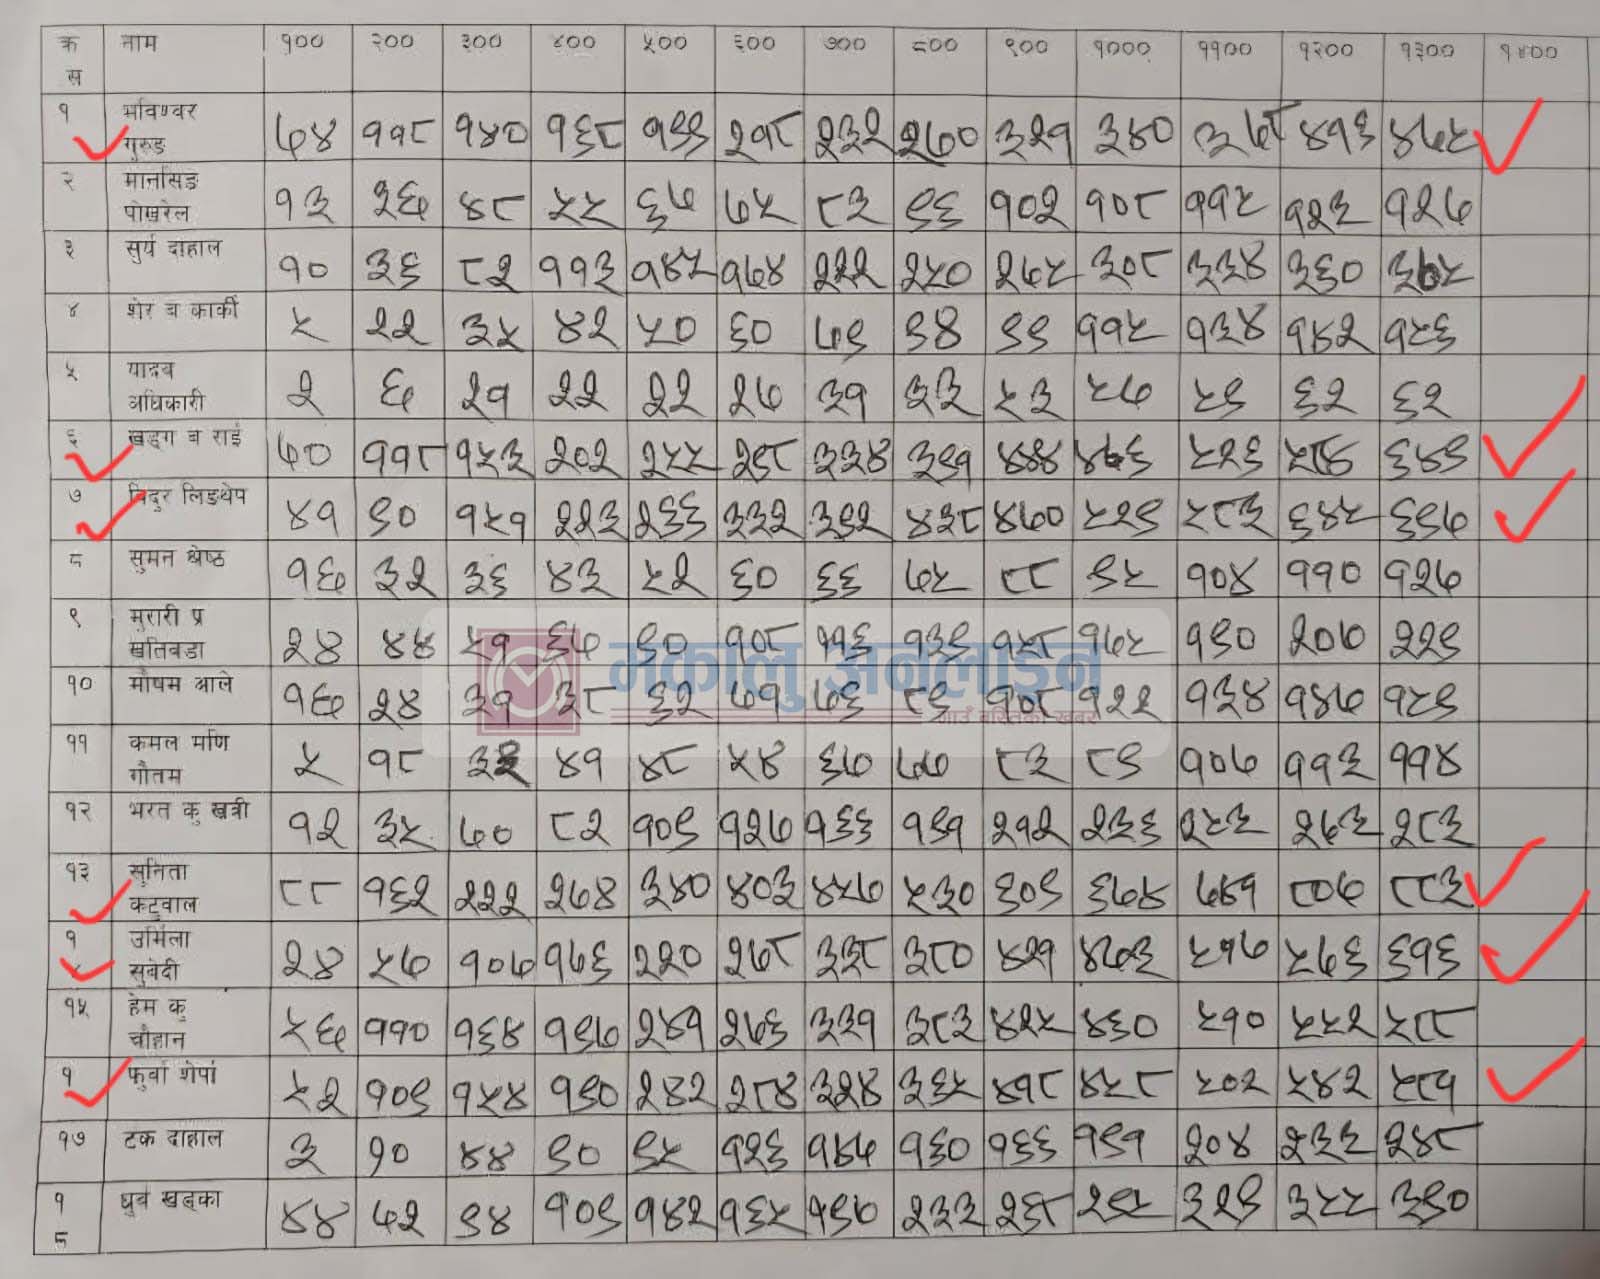 क्र स नाम १०० २०० ३०० ४०० ५०० ६०० ७०० ८०० ९०० १००० ११०० १२०० १३०० १४००
१ भविण्वर गुरुङ ७४ ११८ १४० १६८ १९९ २१८ २३२ २७० ३२१ ३४० ३७८ ४१६ ४७५
२ मानसिङ पोखरेल १३ २६ ४८ ५५ ६७ ७५ ८३ ९६ १०२ १०८ ११५ १२३ १२७
३ सुर्य दाहाल १० ३६ ८२ ११३ १४५ १७४ २२२ २५० २७५ ३०८ ३३४ ३६०
४ शेर ब कार्की ५ २२ ३५ ४२ ५० ६० ७९ ९४ ९९ ११५ १३४ १४२ १५६
५ यादव अधिकारी २ ६ २१ २२ २२ २७ ३१ ३३ ५३ ५७ ५९ ६२ ६२
६ खड्ग ब राई ७० ११८ १५३ २०२ २५५ २९८ ३३४ ३९१ ४४४ ५२६ ६४९
७ विदुर लिङथेप ४१ ९० १५१ २२३ २६६ ३३२ ३९२ ४३८ ४७० ५२९ ५८३ ६४५ ६९७
८ सुमन श्रेष्ठ १६ ३२ ३६ ४३ ५२ ६० ६६ ७५ ८८ ९५ १०४ ११० १२७
९ मुरारी प्र खतिवडा २४ ४४ ५१ ६७ ९० १०८ ११६ १३९ १५८ १७५ १९० २०७ २२९
१० मौषम आले १६ २४ ३१ ३८ ६२ ७१ ७६ ८९ १०८ १२२ १३४ १४७ १५९
मकालु अनलाइन
गाउँ बस्तिको खबर
११ कमल मणि गौतम ५ १८ ४१ ४८ ५४ ६७ ७७ ८३ ८९ १०७ ११३ ११४
१२ भरत कु खत्री १२ ३५ ७० ८२ १०९ १२७ १६६ १९१ २१२ २३६ २५३ २७३ २८३
१३ सुनिता कटुवाल ८८ १६२ २२२ २७४ ३४० ४०३ ४५७ ५३० ६०९ ६७५ ७४१ ८०७ ८८३
१ उर्मिला सुवेदी २४ ५७ १०७ १७६ २२० २७८ ३३८ ३८० ४२१ ४७३ ५१७ ५७६ ६१६
१५ हेम कु चौहान ५६ ११० १६४ १९७ २४१ २७६ ३३१ ३८३ ४२५ ४६० ५१० ५५२ ५८८
१ फुर्वा शेर्पा ५२ १०९ १५४ १९० २४२ २८४ ३२४ ३६५ ४१८ ४५८ ५०२ ५४२
१७ टंक दाहाल ३ १० ४४ ९० ९५ १२६ १४७ १६० १६६ १९१ २०४ २३३ २४८
१८ ध्रुव खड्का ४४ ७२ ९४ १०९ १४२ १६५ १९७ २३३ २६८ २९५ ३२९ ३५५ ३९०